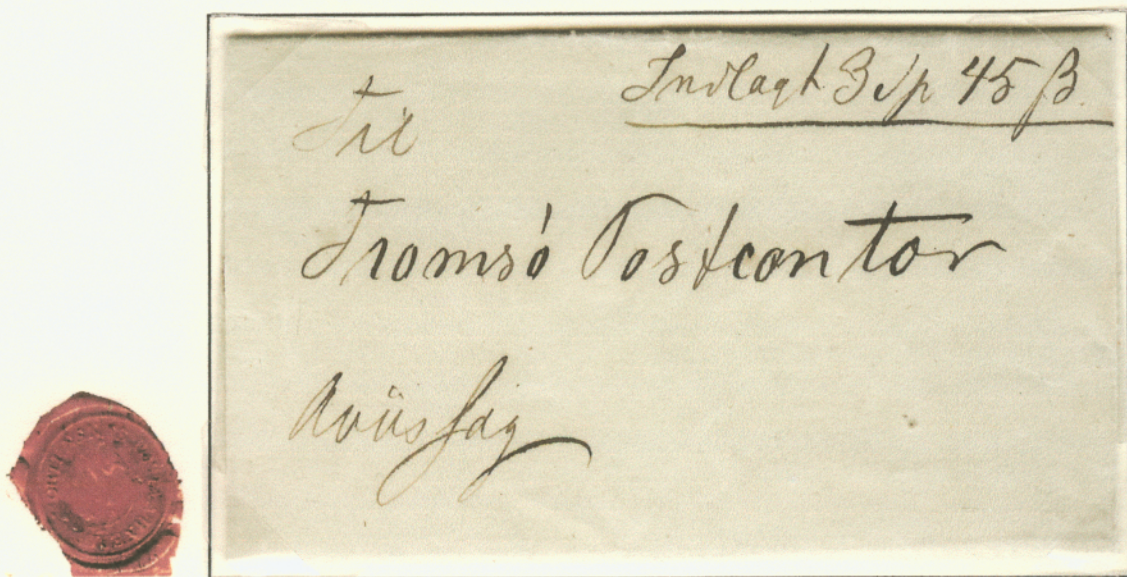 Indlagt 3 Sp 45 β
Til
Tromsó Postcontor
Aviissag